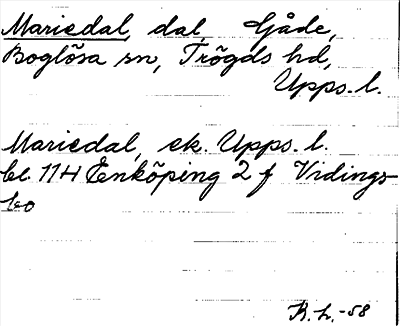 Mariedal, dal, Gåde,
Boglösa sn, Trögds hd,
Upps. l.
Mariedal, ek. Upps. l.
bl. 114 Enköping 2 f Vidings-
bo
R. L. -58